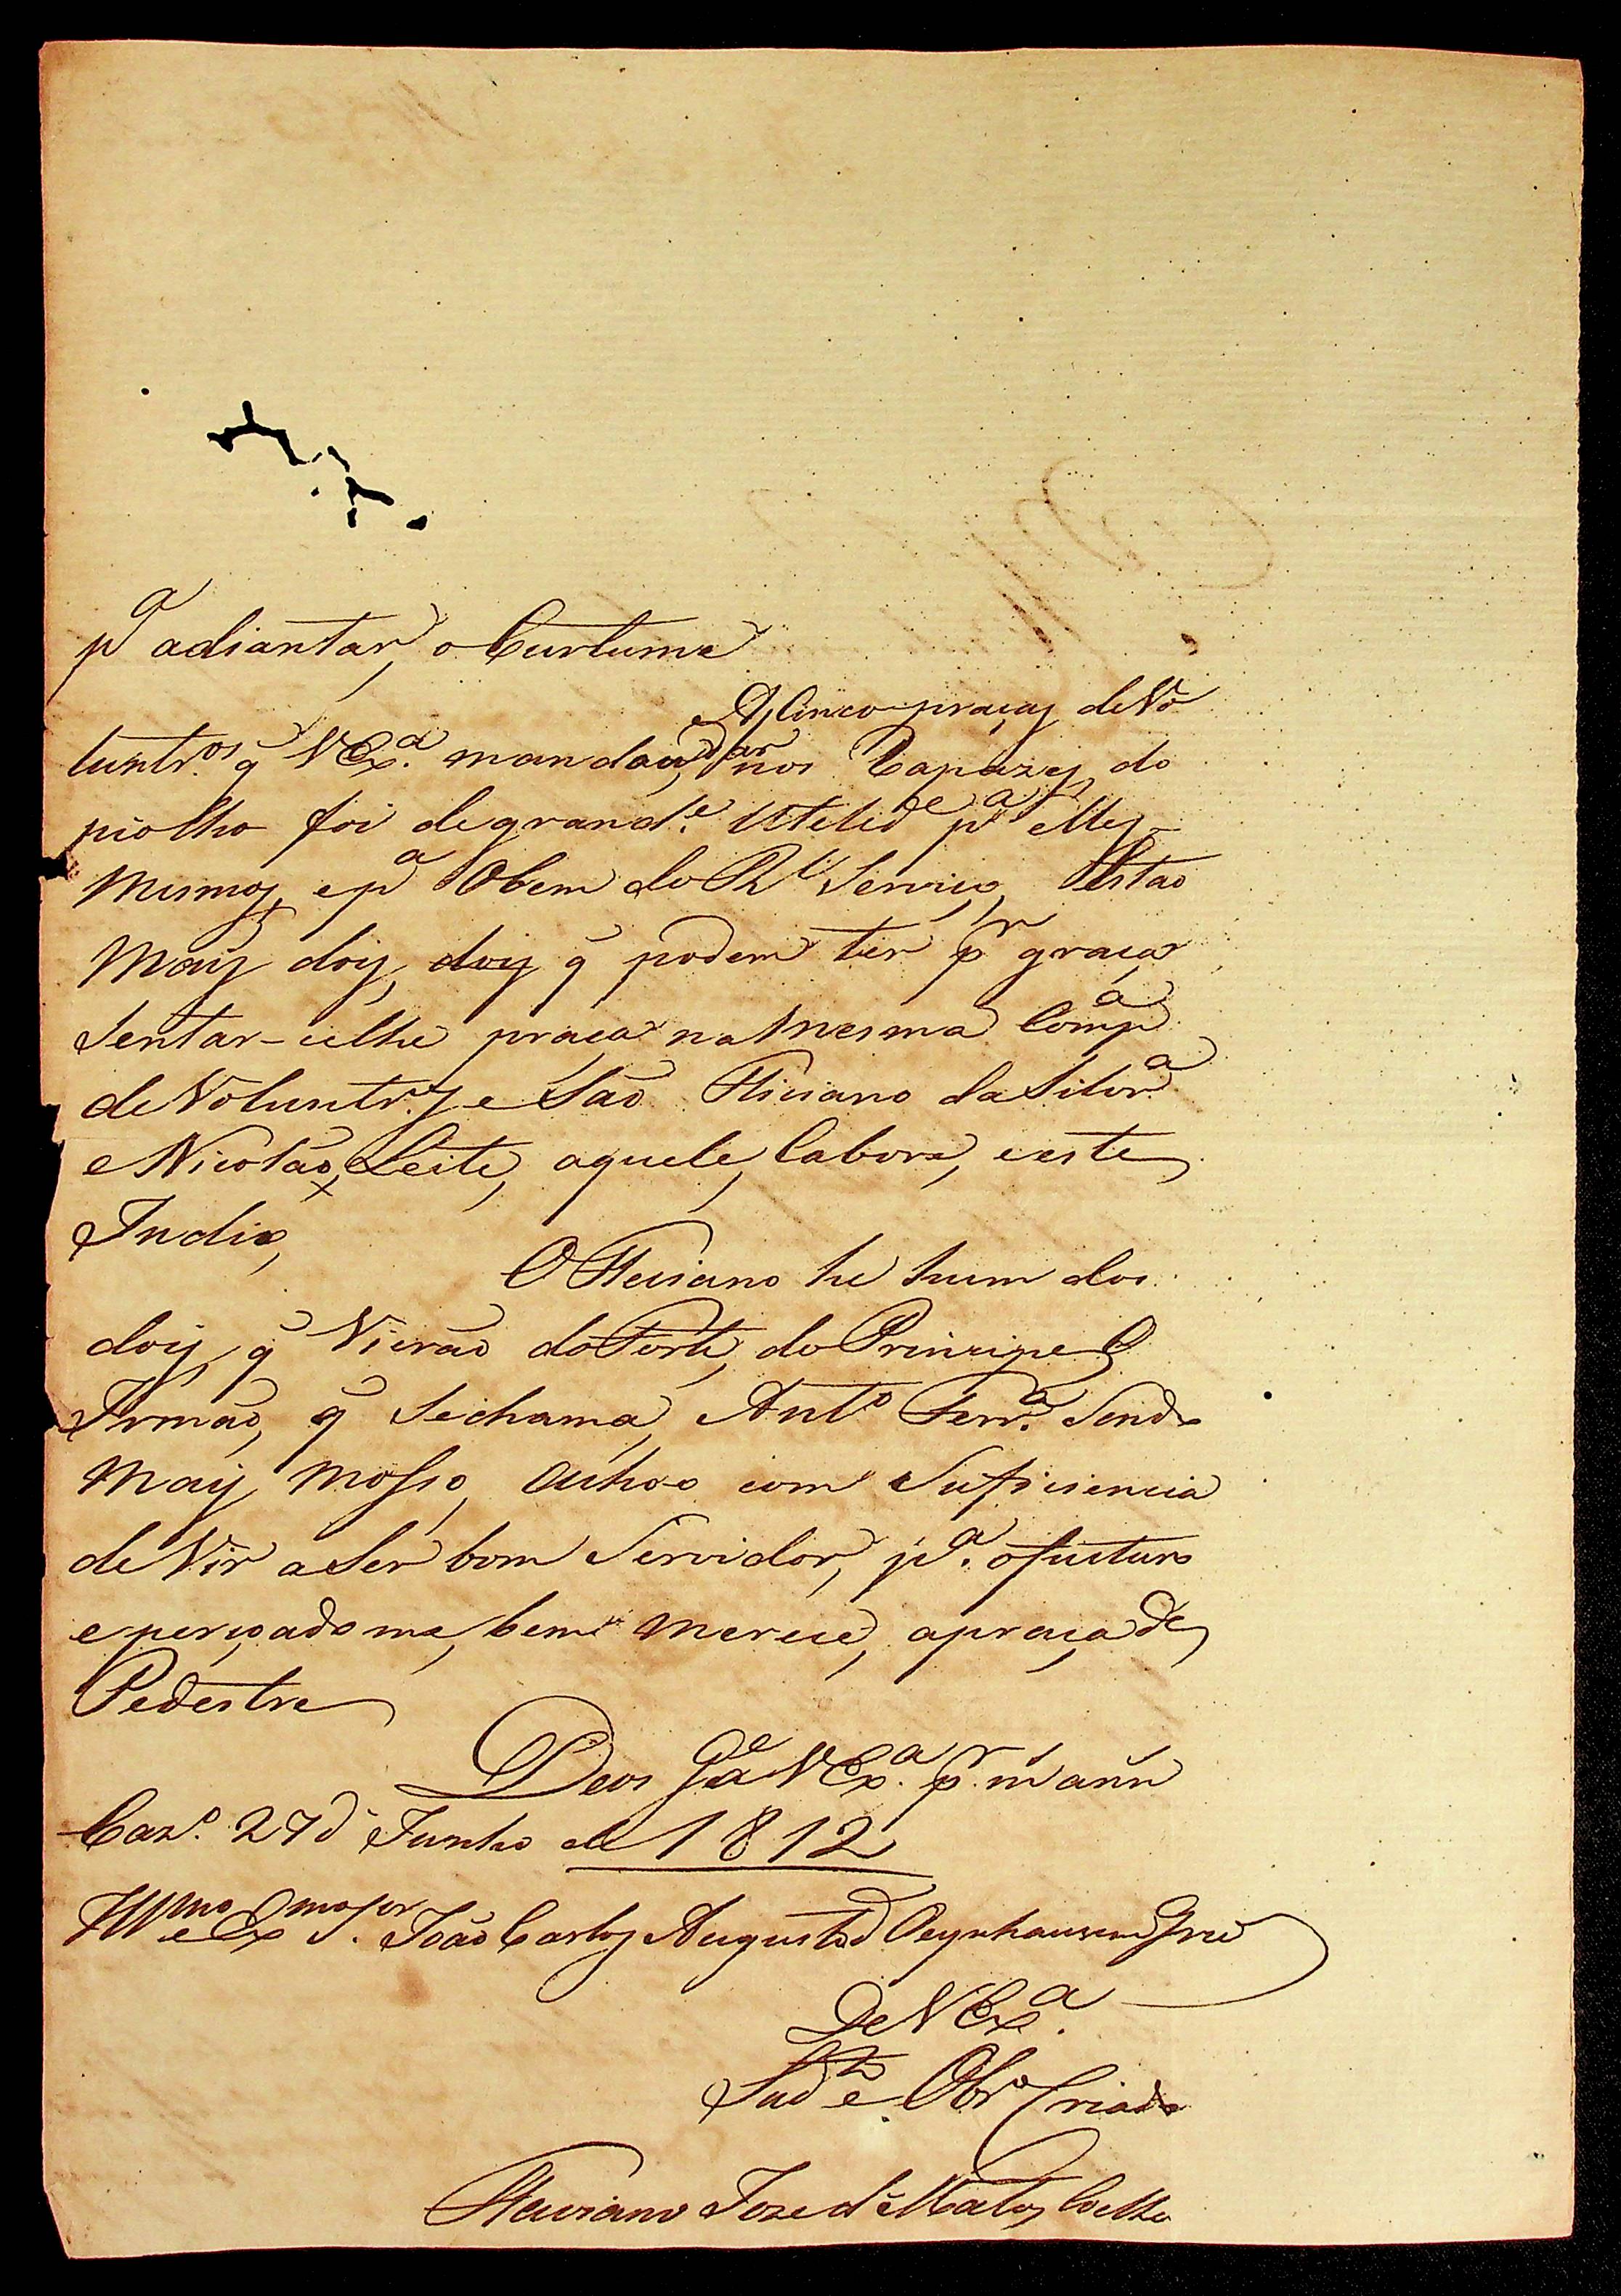 pᵃ adiantar, o Curtume
As Cinco praças de Vo
luntr.ᵒˢ q̃ VEx.ᵃ mandou dar nos Rapazes do
piolho foi de grand.ᵉ Utelidᵉ pᵃ elles
mesmos, e pᵃ O bem do Rˡ Serviço, Estaõ
mais dois, dois q̃ podem ter pʳ graça
Sentar-celhe praça na mesma Compᵃ
de Voluntr.ˢ e Saõ Fliciano da Silvᵃ
e Nicoláo Leite, aquele, Cabora, e este
Indio,
O Fleciano he hum dos
dois, q̃ Vieraõ do Forte, do Principe O
Irmaõ, q̃ Se chama, Antᵒ Ferrᵃ Sendo
mais mosso, acho-o com Suficiencia
de Vir a Ser bom Servidor, pᵃ. o futuro
e bem merece, a praça de
Pedestre
Deos Gᵈᵉ VExᵃ. pʳ. m ann
Cazᵒ. 27 dʼ Junho de 1812
Illᵐᵒ e Exᵐᵒ Sʳ. Joaõ Carlos Augusto dʼ Oeynhausen Grvᵈ
De VExᵃ.
Subᵗᵒ e Obrᵒ Criado
Fleciano Joze dʼ Mattos Coelho